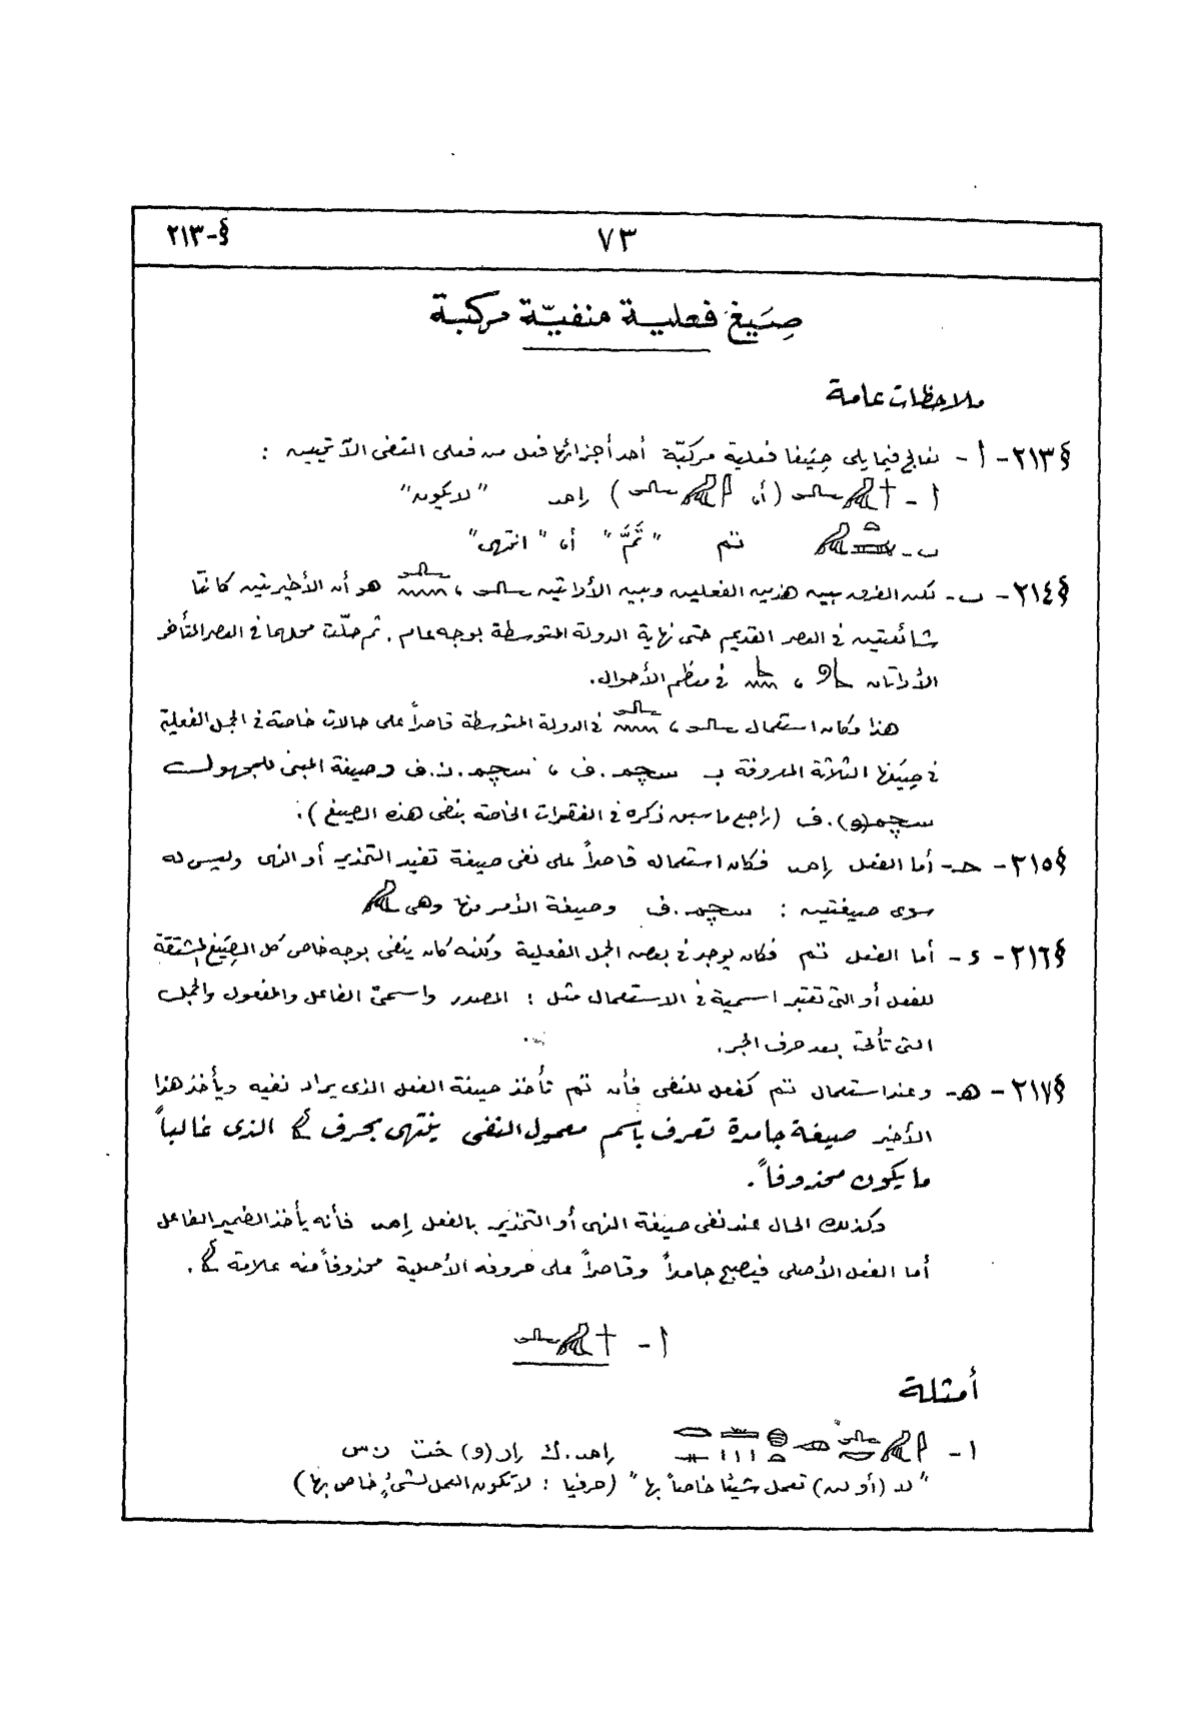 §-٢١٣
٧٣
صِيَغ فعلية منفيّة مركبة
ملاحظات عامة
§٢١٣- أ - نعالج فيما يلى صِيَغا فعلية مركبّة أحد أجزائها فعل من فعلى النفى الآتيين :
أ - (أو ) إمد "لا يكون"
ب- تم "تَمَّ" أو "انتهى"
§٢١٤- ب- لكن الفرق بين هذين الفعلين وبين الأداتين ، هو أن الأخيرتين كانتا
شائعتين فى العصر القديم حتى نهاية الدولة المتوسطة بوجه عام . ثم حلّت محلهما فى العصر المتأخر
الأداتان ، فى معظم الأحوال.
هذا وكان استعمال ، فى الدولة المتوسطة قاصراً على حالات خاصة فى الجمل الفعلية
فى صِيَغها الثلاثة المعروفة بـ سچم.ف ، سچم.ن.ف وصيغة المبنى للمجهول
سچم(و).ف (راجع ما سبق ذكره فى الفقرات الخاصة بنفى هذه الصيغ).
§٢١٥- حـ- أما الفعل إمد فكان استعماله قاصراً على نفى صيغة تفيد التحذير أو النهى وليس له
سوى صيغتين : سچم.ف وصيغة الأمر منها وهى
§٢١٦- ء- أما الفعل تم فكان يوجد فى بعض الجمل الفعلية ولكنه كان ينفى بوجه خاص كل الصِيَغ المشتقة
للفعل أو التى تعتبر اسمية فى الاستعمال مثل : المصدر واسمىّ الفاعل والمفعول والجمل
التى تأتى بعد حرف الجر.
§٢١٧- هـ- وعند استعمال تم كفعل للنفى فأن تم تأخذ صيغة الفعل الذى يراد نفيه ويأخذ هذا
الأخير صيغة جامدة تعرف بأسم معمول النفى ينتهى بحرف الذى غالباً
ما يكون محذوفاً.
وكذلك الحال عند نفى صيغة النهى أو التحذير بالفعل إمد فأنه يأخذ الضمير الفاعل
أما الفعل الأصلى فيصبح جامداً وقاصراً على حروفه الأصلية محذوفاً منه علامة .
أ -
أمثلة
١ - إمد.ك إر(و) خت ن.س
"لا (أو لن) تعمل شيئا خاصاً بها" (حرفيا : لا تكون العمل لشىءٍ خاص بها)